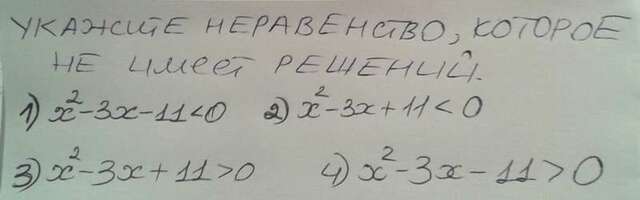 УКАЖИТЕ НЕРАВЕНСТВО, КОТОРОЕ
НЕ ИМЕЕТ РЕШЕНИЙ.
1) x²-3x-11<0 2) x²-3x+11<0
3) x²-3x+11>0 4) x²-3x-11>0